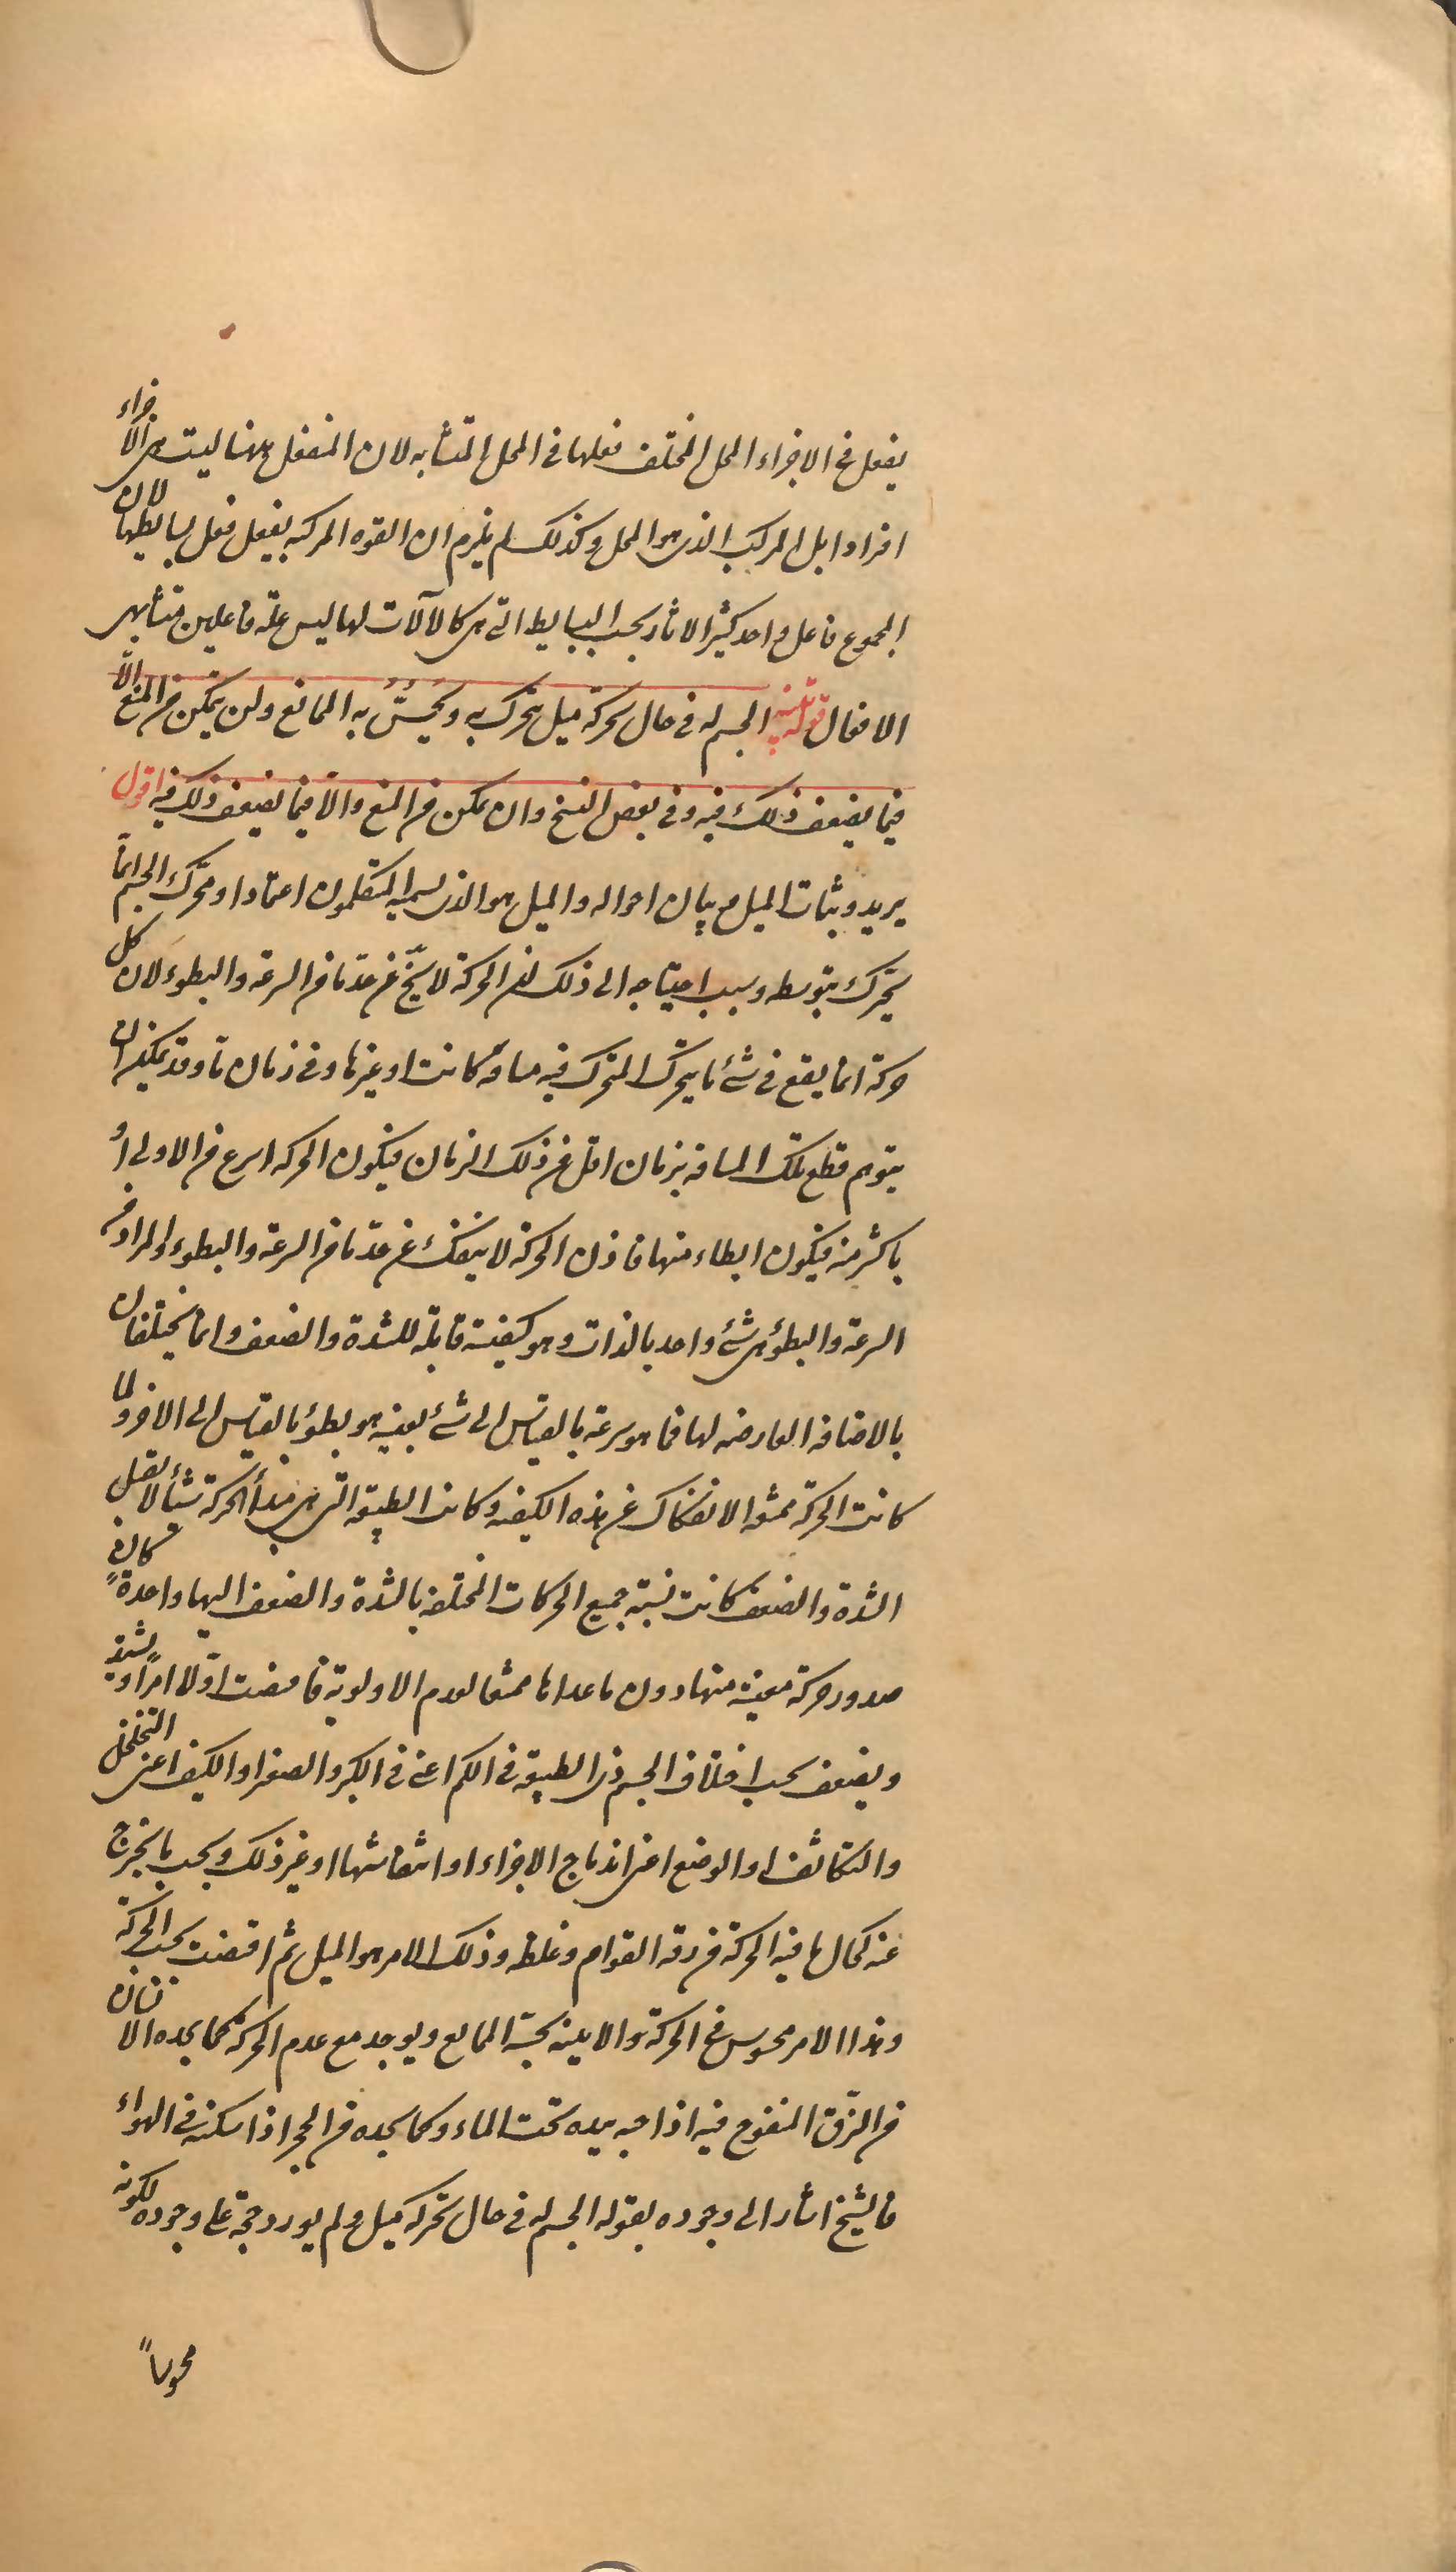 يفعل فى الاجزاء المحل المختلف فعلها فى المحل المتشابه لان المنفعل ههنا ليست هى الاجزاء
افرادا بل المركب الذى هو المحل وكذلك لم يلزم ان القوه المركبه يفعل فعل بسايطها لان
المجموع فاعل واحد كثير الاثار بحسب البسايط التى هى كالآلات لها ليس علة فاعلين متشابهى
الافعال قوله تنبيه الجسم له فى حال تحركه ميل يتحرك به ويُحِسُّ به الممانع ولن يتمكن من المنع الّا
فيما يضعف ذلك فيه وفى بعض النسخ وان تمكن من المنع والّا فيما يضعف ذلك فيه اقول
يريد اثبات الميل وبيان احواله والميل هو الذى يسميه المتكلمون اعتمادا ومحرّك الجسم انما
يتحرك بتوسطه وسبب احتياجه الى ذلك ان الحركة لا يخ عن حدّ ما من السرعة والبطوء لان كل
حركة انما يقع فى شئ ما يتحرك المتحرك فيه مسافة كانت او غيرها وفى زمان ما وقد يمكن ان
يتوهم قطع تلك المسافة بزمان اقل من ذلك الزمان فيكون الحركه اسرع من الاولى أو
باكثر منه فيكون ابطاء منها فاذن الحركة لا ينفك عن حدّ ما من السرعة والبطوء والمراد من
السرعة والبطؤ هى شئ واحد بالذات وهو كيفية قابلة للشدة والضعف وانما يختلفان
بالاضافة العارضه لها فما هو سرعة بالقياس الى شئ بعينه هو بطؤ بالقياس الى الاخر ولما
كانت الحركة ممتنعة الانفكاك عن هذه الكيفيه وكانت الطبيعة التى هى مبدأ الحركة شيئا لا يقبل
الشدة والضعف كانت نسبة جميع الحركات المختلفة بالشدة والضعف اليها واحدةً فكان
صدور حركة معينة منها دون ما عداها ممتنعا لعدم الاولوية فاقتضت اوّلا امرًا يشتد
ويضعف بحسب اختلاف الجسم ذى الطبيعة فى الكم اعنى فى الكبر والصغر او الكيف اعنى التخلخل
والتكاثف او الوضع اعنى اندماج الاجزاء او انتفاشها او غير ذلك وبحسب ما يخرج
عنه كحال ما فيه الحركة من رقه القوام وغلظه وذلك الامر هو الميل ثم اقتضت بحسبه الحركة
وهذا الامر محسوس فى الحركة والاينية يحسّه الممانع ويوجد مع عدم الحركة كما يجده الانسان
من الزّق المنفوخ فيه اذا حبسه بيده تحت الماء وكما يجده من الحجر اذا اسكنه فى الهواء
فالشيخ اشار الى وجوده بقوله الجسم له فى حال تحركه ميل ولم يورد حجة على وجوده لكونه
محسوساً